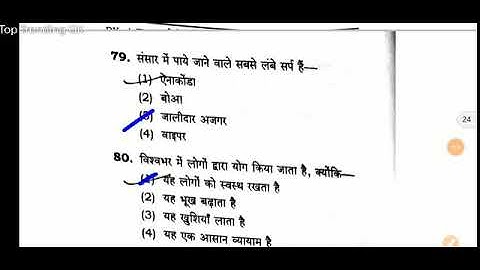 Top
79. संसार में पाये जाने वाले सबसे लंबे सर्प हैं—
(1) ऐनाकोंडा
(2) बोआ
(3) जालीदार अजगर
(4) वाइपर
24
80. विश्वभर में लोगों द्वारा योग किया जाता है, क्योंकि—
(1) यह लोगों को स्वस्थ रखता है
(2) यह भूख बढ़ाता है
(3) यह खुशियाँ लाता है
(4) यह एक आसान व्यायाम है